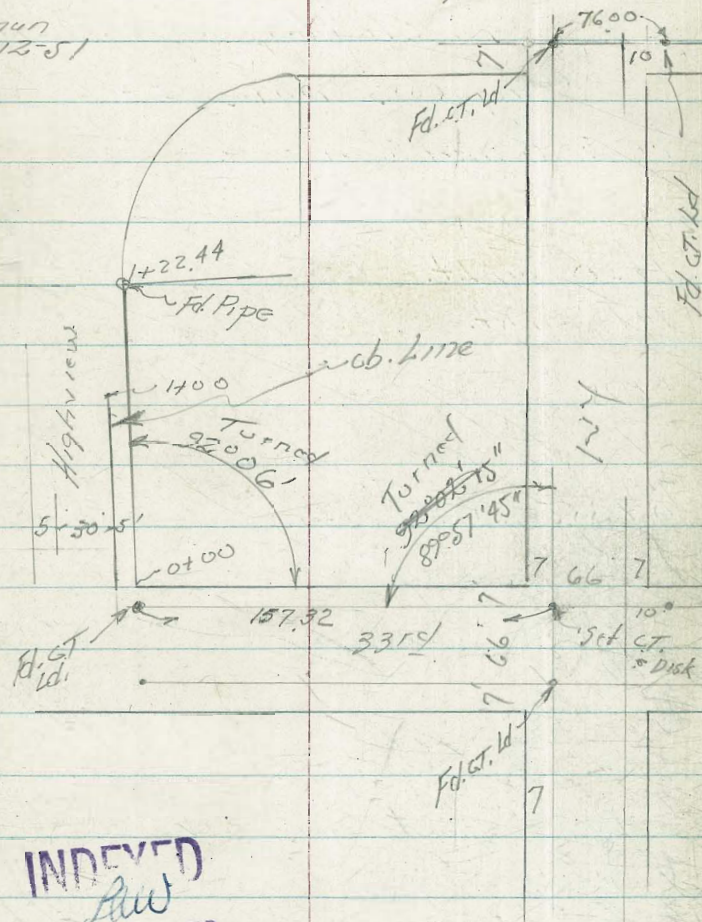 12-51
76.00
7'
10
Fd. CT. Ld
Fd. CT. Ld
1+22.44
Fd. Pipe
Highview
cb. Line
1+00
Turned
92°06'
Turned
89°57'45"
5-30-5'
0+00
7
66
7
157.32
7'
10
33rd
66
Set
CT.
Disk
Fd. CT
Ld.
7'
Fd. CT. Ld
7
INDEXED